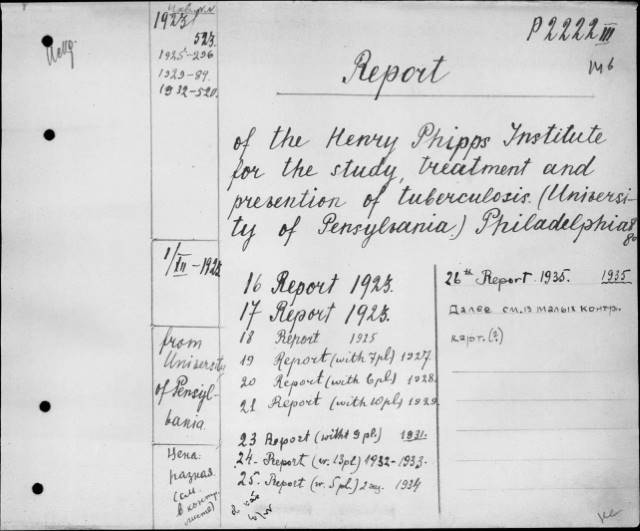 1923
523
1925-296
1929-89.
1932-520.
P2222 III
M6
Report
of the Henry Phipps Institute
for the study, treatment and
prevention of tuberculosis. (Universi-
ty of Pensylvania.) Philadelphia
8°
1/XII-1923
from
University
of Pensyl-
vania
Цена:
разная
(см.
в контр.
листе)
16 Report 1923.
17 Report 1923.
18 Report 1925
19 Report (with 7pl) 1927
20 Report (with 6pl) 1928
21 Report (with 10pl) 1929
23 Report (witht 9 pl.) 1931.
24 - Report (w. 13pl) 1932-1933.
25 - Report (w. 5pl) 1934
26th Report 1935. 1935
Далее см. в малых контр.
карт. (?)